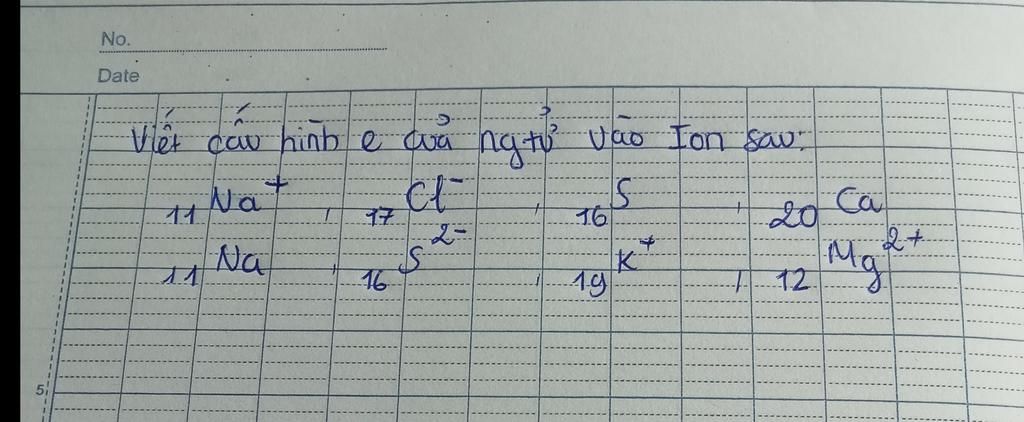 No.
Date
Viết cấu hình e của ngtử vào Ion sau:
₁₁Na⁺, ₁₇Cl⁻, ₁₆S, ₂₀Ca
₁₁Na, ₁₆S²⁻, ₁₉K⁺, ₁₂Mg²⁺
5